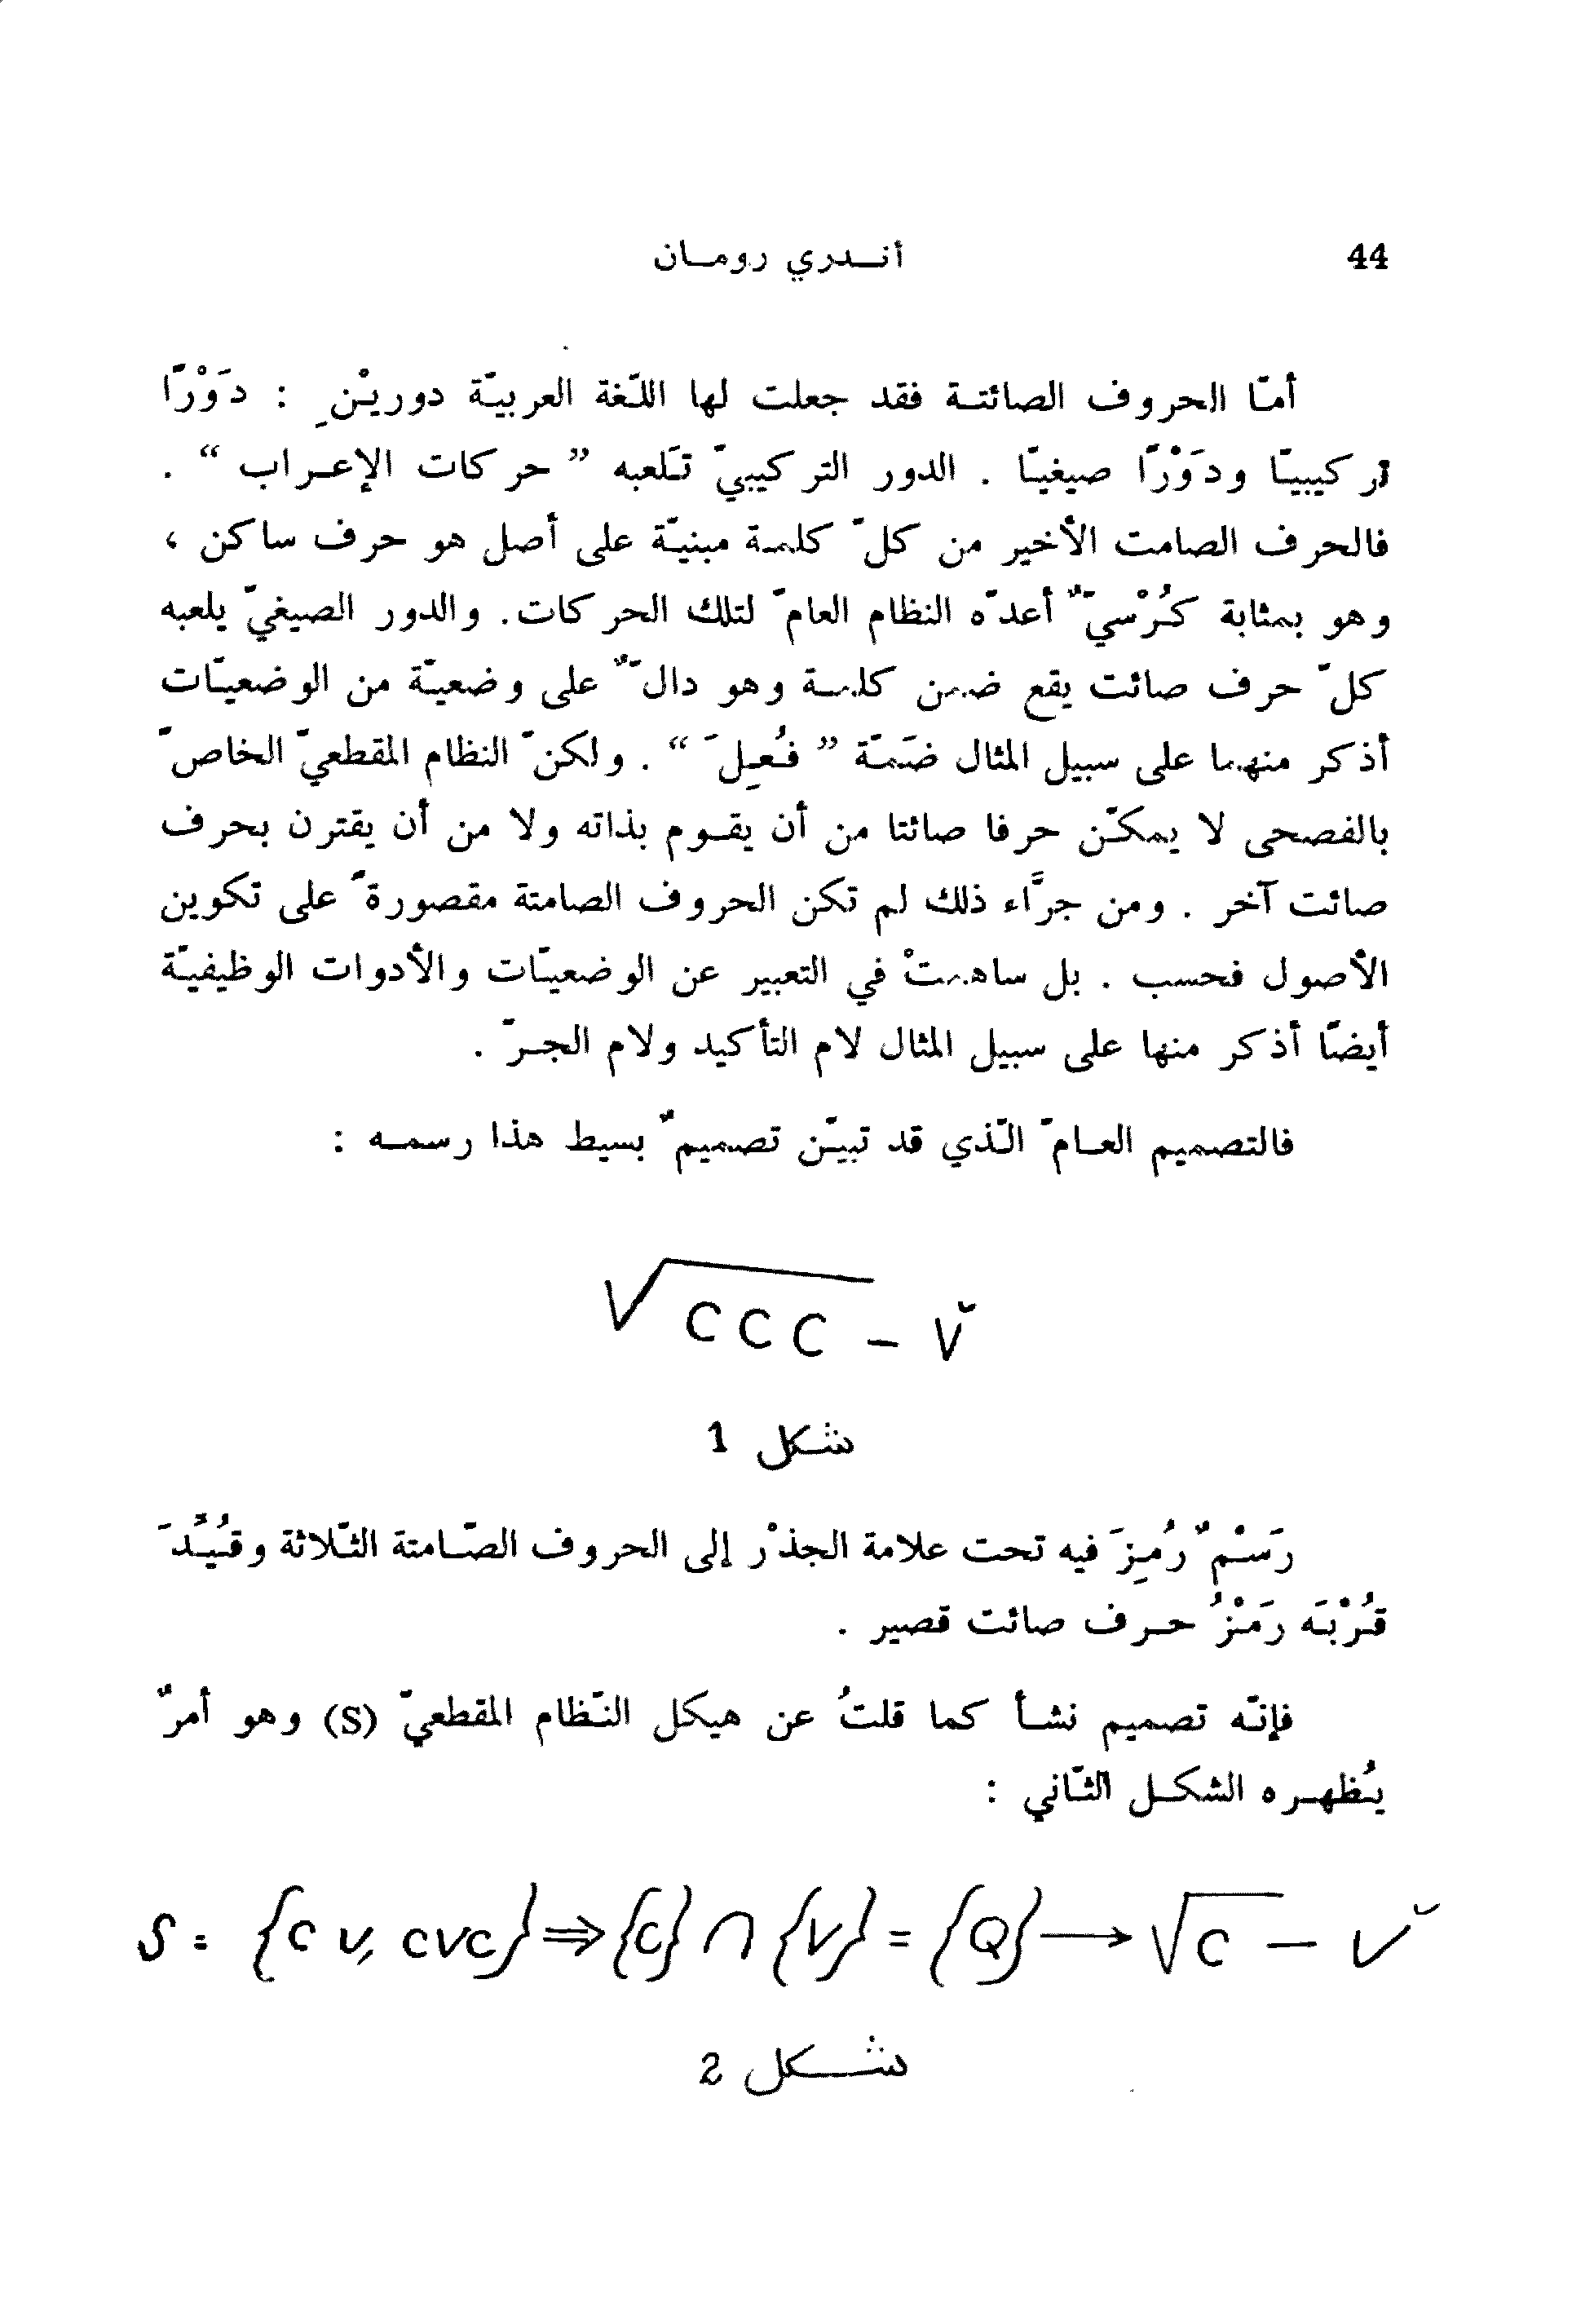 44 أنـدري رومـان
أمّا الحروف الصائتـة فقد جعلت لها اللّغة العربيّة دوريْنِ : دَوْرًا
تركيبيّا ودَوْرًا صيغيّا . الدور التركيبيّ تَلعبه " حركات الإعـراب " .
فالحرف الصامت الأخير من كلّ كلمة مبنيّة على أصل هو حرف ساكن ،
وهو بمثابة كُرْسيٍّ أعدّه النظام العامّ لتلك الحركات. والدور الصيغيّ يلعبه
كلّ حرف صائت يقع ضمن كلمـة وهو دالٌّ على وضعيّة من الوضعيّات
أذكر منهما على سبيل المثال ضَمّة " فُعِلَ " . ولكنّ النظام المقطعيّ الخاصّ
بالفصحى لا يمكّن حرفا صائتا من أن يقـوم بذاته ولا من أن يقترن بحرف
صائت آخر . ومن جرَّاء ذلك لم تكن الحروف الصامتة مقصورةً على تكوين
الأصول فحسب . بل ساهمتْ في التعبير عن الوضعيّات والأدوات الوظيفيّة
أيضًا أذكر منها على سبيل المثال لام التأكيد ولام الجـرّ .
فالتصميم العـامّ الّذي قد تبيّن تصميمٌ بسيط هذا رسمـه :
√CCC – V̆
شكل 1
رَسْمٌ رُمِزَ فيه تحت علامة الجذْر إلى الحروف الصّـامتة الثّلاثة وقُيِّدَ
قُرْبَه رَمْزُ حـرف صائت قصير .
فإنّه تصميم نشـأ كما قلتُ عن هيكل النّظام المقطعيّ (S) وهو أمرٌ
يُظهـره الشكـل الثّاني :
S = {CV, CVC} ⇒ {C} ∩ {V} = {Q} → √C – V̆
شـكل 2